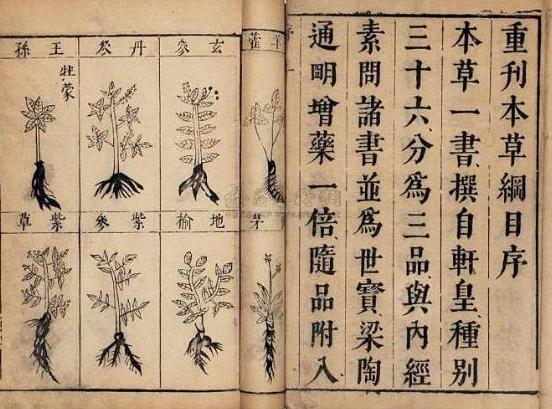 重刊本草綱目序
本草一書撰自軒皇種別
三十六分爲三品與內經
素問諸書並爲世寶梁陶
通明增藥一倍隨品附入
羊藿
玄參
丹參
王孫
牡蒙
茅
地榆
紫參
紫草